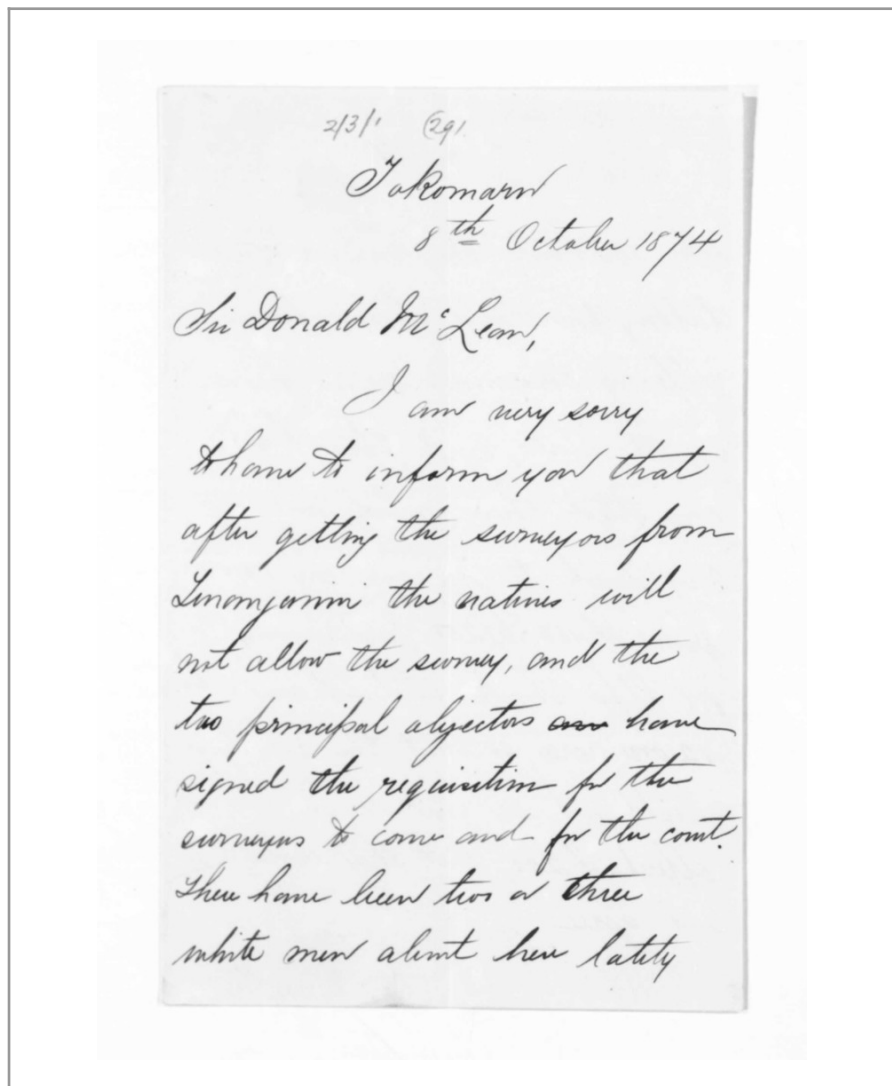 2/3/1 (291.
Tokomaru
8th October 1874
Sir Donald McLean,
I am very sorry
to have to inform you that
after getting the surveyors from
the natives will
not allow the survey, and the
two principal objectors are have
signed the requisition for the
surveyors to come and for the court.
There have been two or three
white men about here lately